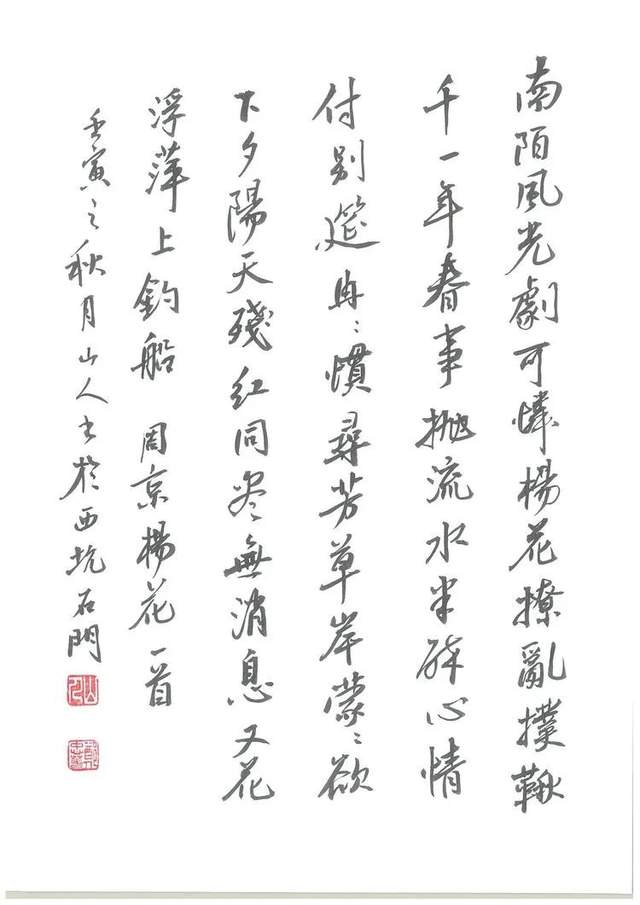 南陌風光劇可憐楊花撩亂撲鞦
千一年春事抛流水半醉心情
付別筵冉〻慣尋芳草岸蒙〻欲
下夕陽天殘红同尽無消息又花
浮萍上釣船 周京楊花一首
壬寅之秋月山人书於西坑石門
山人